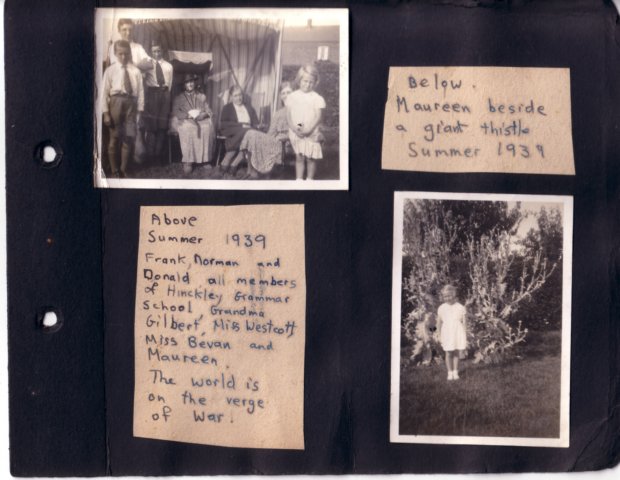 Above
Summer 1939
Frank, Norman and
Donald, all members
of Hinckley Grammar
School, Grandma
Gilbert, Miss Westcott,
Miss Bevan and
Maureen.
The world is
on the verge
of war.
Below.
Maureen beside
a giant thistle
Summer 1939